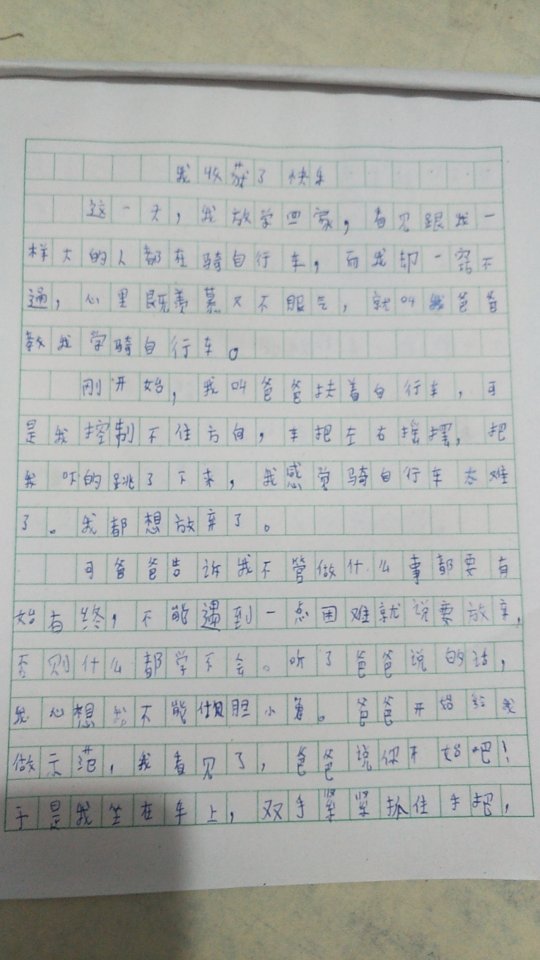 我收获了快乐
这一天，我放学回家，看见跟我一
样大的人都在骑自行车，而我却一窍不
通，心里既羡慕又不服气，就叫爸爸
教我学骑自行车。
刚开始，我叫爸爸扶着自行车，可
是我控制不住方向，车把左右摇摆，把
我吓的跳了下来，我感觉骑自行车太难
了。我都想放弃了。
可爸爸告诉我不管做什么事都要有
始有终，不能遇到一点困难就说要放弃，
否则什么都学不会。听了爸爸说的话，
我心想我不能做胆小鬼。爸爸开始给我
做示范，我看见了，爸爸说你开始吧！
于是我坐在车上，双手紧紧抓住手把，